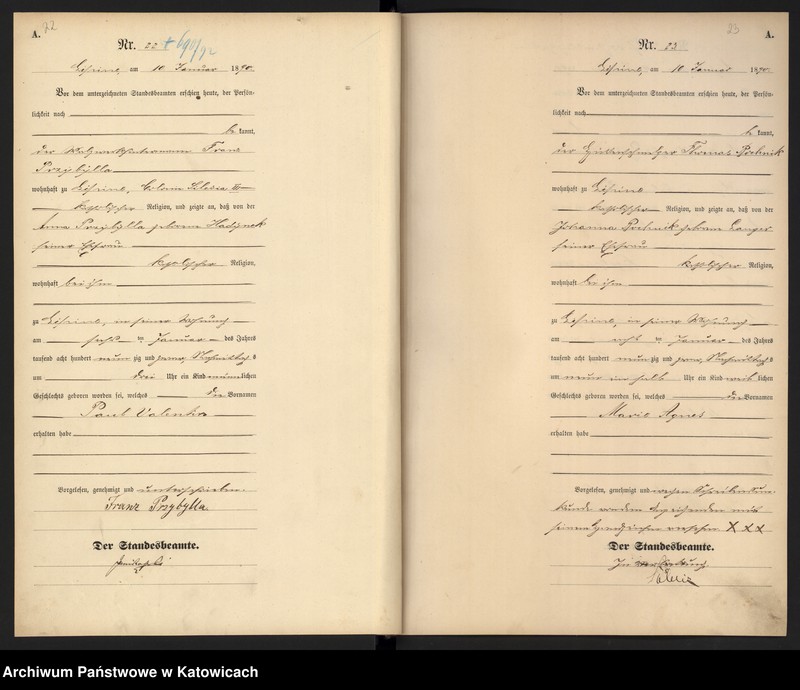 A. 22
Nr. 22 + 690/92
am 10 Januar 1890.
Vor dem unterzeichneten Standesbeamten erschien heute, der Persön-
lichkeit nach
be kannt,
der Franz
Przybylla
wohnhaft zu Colonie Silesia III
katholischer Religion, und zeigte an, daß von der
Anna Przybylla geborene
seiner Ehefrau
katholischer Religion,
wohnhaft bei ihm
zu in seiner Wohnung
am sechs ten Januar des Jahres
tausend acht hundert neun zig und zwar Nachmittags
um drei Uhr ein Kind männlichen
Geschlechts geboren worden sei, welches die Vornamen
Paul Valentin
erhalten habe
Vorgelesen, genehmigt und unterschrieben.
Franz Przybylla.
Der Standesbeamte.
23 A.
Nr. 23
am 10 Januar 1890.
Vor dem unterzeichneten Standesbeamten erschien heute, der Persön-
lichkeit nach
be kannt,
der Thomas
wohnhaft zu
katholischer Religion, und zeigte an, daß von der
Johanna geborene
seiner Ehefrau
katholischer Religion,
wohnhaft bei ihm
zu in seiner Wohnung
am ten Januar des Jahres
tausend acht hundert neun zig und zwar Nachmittags
um neun ein halb Uhr ein Kind weib lichen
Geschlechts geboren worden sei, welches die Vornamen
Marie Agnes
erhalten habe
Vorgelesen, genehmigt und wegen Schreibensun-
kunde
versehen X X X
Der Standesbeamte.
In Vertretung
Archiwum Państwowe w Katowicach